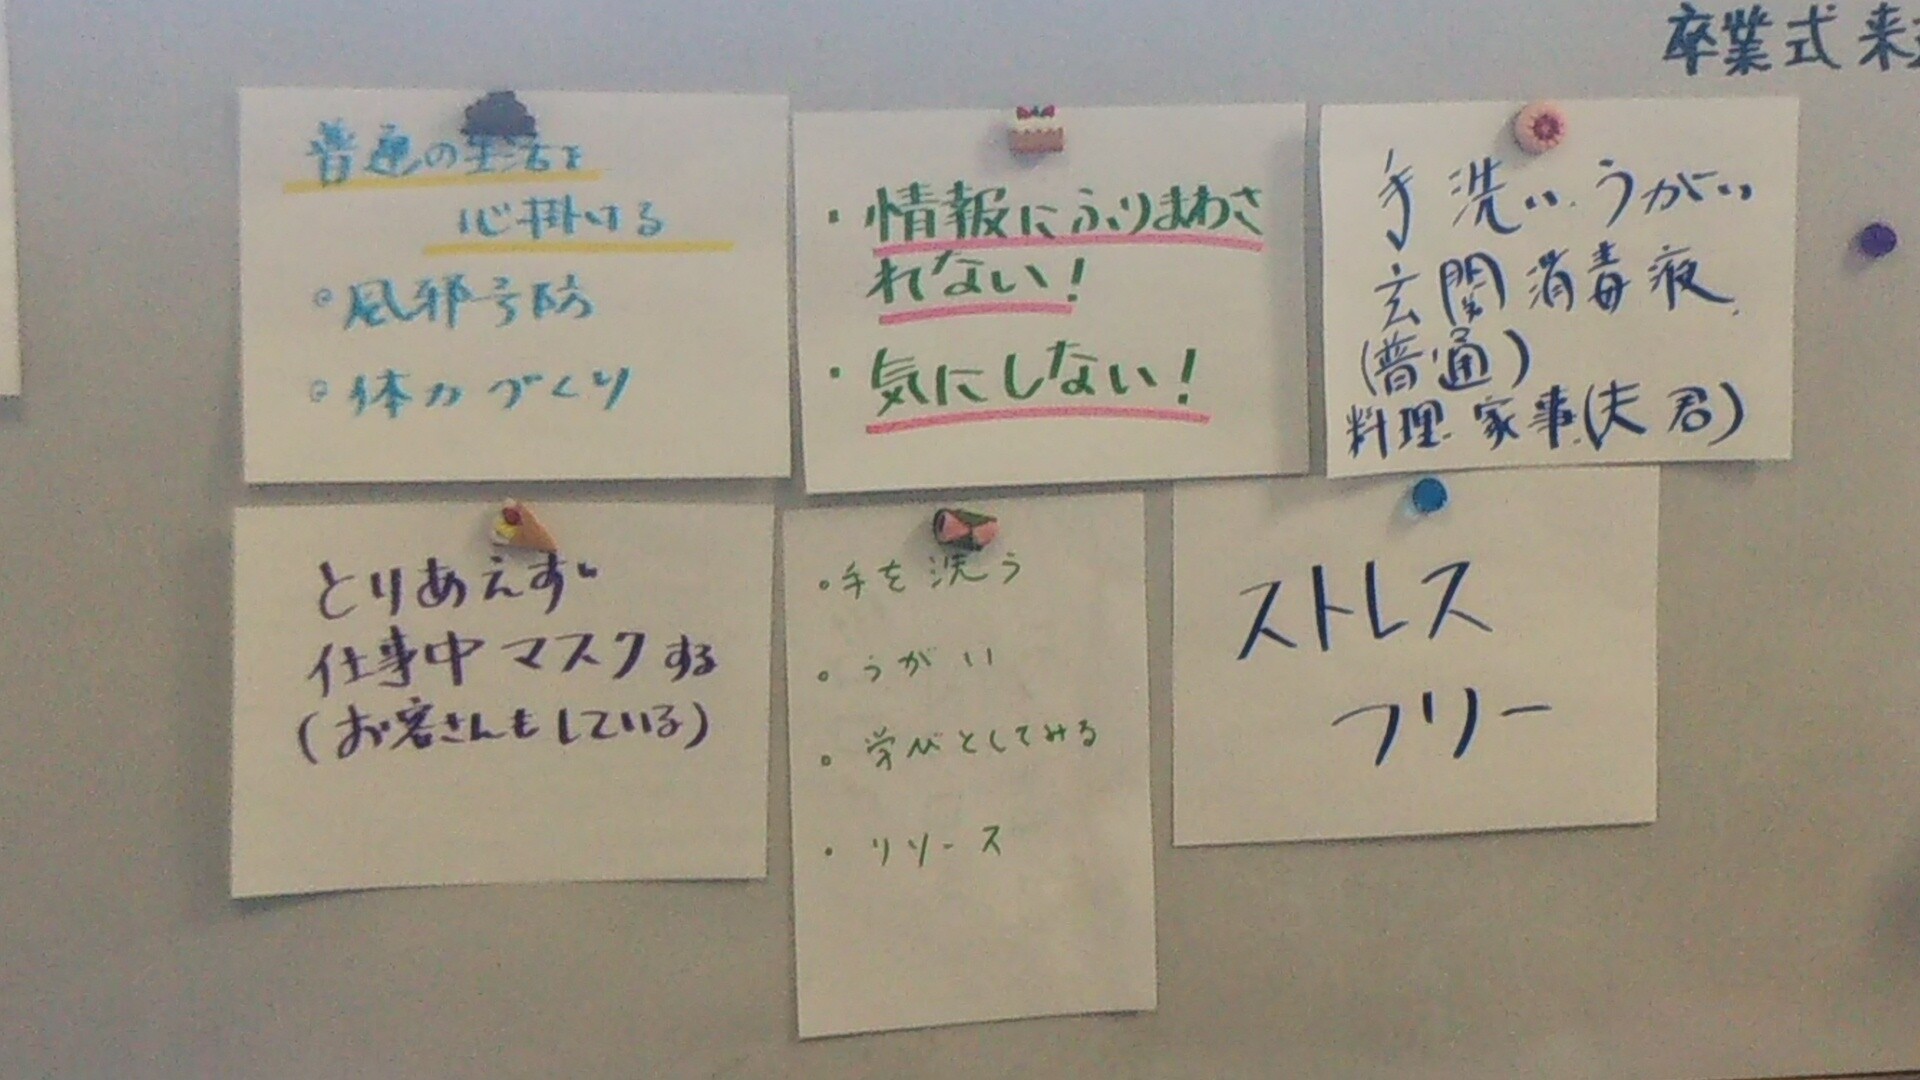 卒業式 来
普通の生活を
心掛ける
・風邪予防
・体力づくり
・情報にふりまわさ
れない!
・気にしない!
手洗い、うがい
玄関消毒液、
(普通)
料理、家事、(夫君)
とりあえず
仕事中マスクする
(お客さんもしている)
・手を洗う
・うがい
・学びとしてみる
・リソース
ストレス
フリー